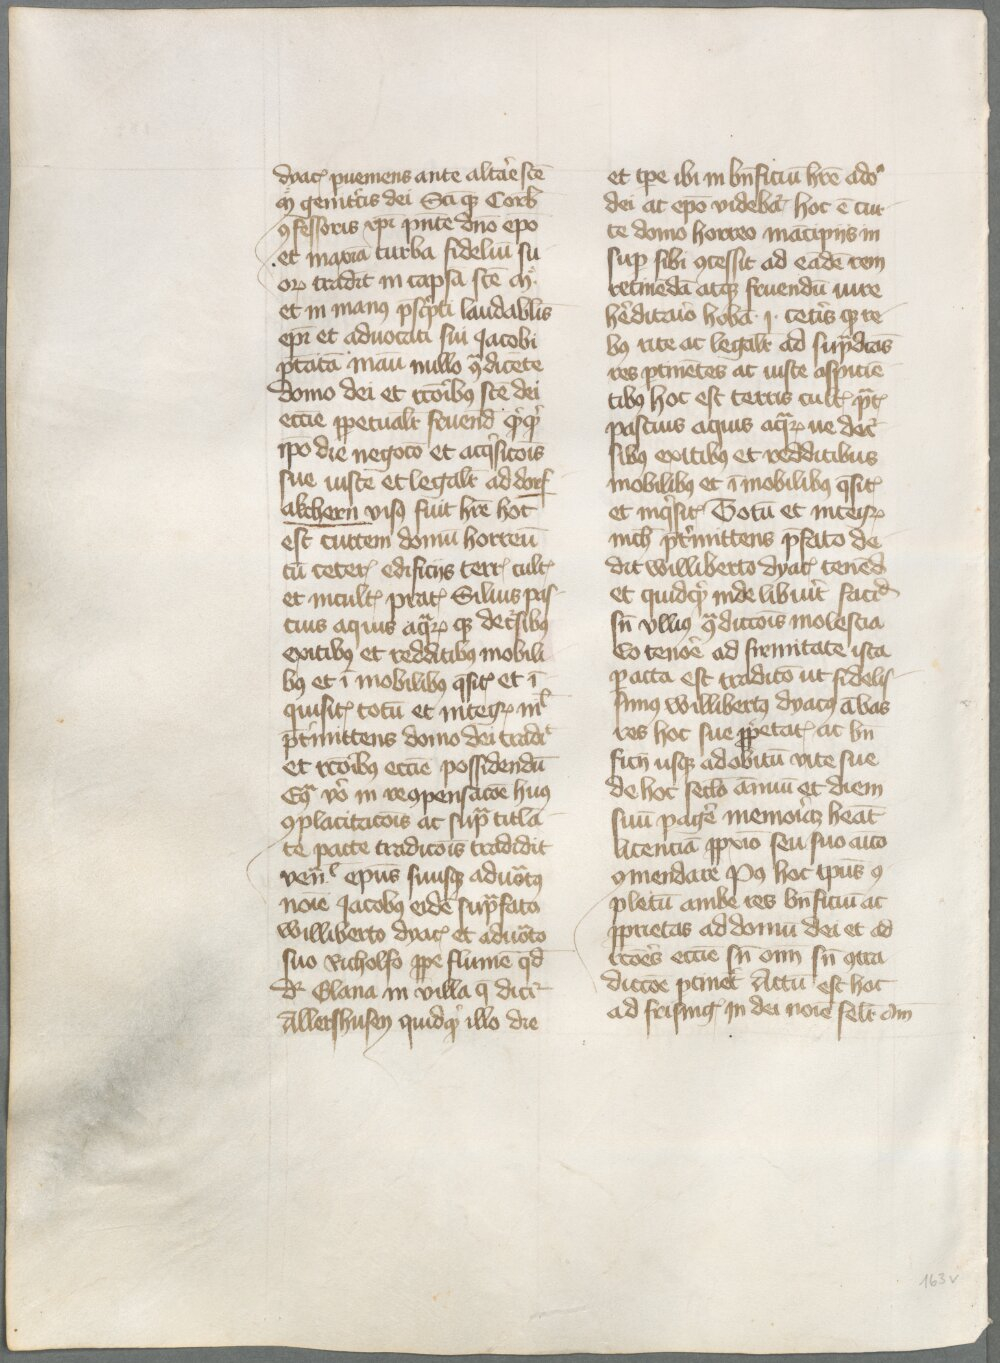 dyac̄ pueniens ante altare scē
M̄ genitcis dei Sciq̄ȝ Corb
ꝯfessoris xp̄i pn̄te dn̄o epo
et maxīa turba fideliū su
oꝝ tradit in capsa scē M̄.
et in manꝰ p̄scpti laudablis
epī et aduocati sui Jacobi
p̄tatā manū nullo ꝯ̄dicēte
domo dei et rcōibꝰ scē dei
eccīe ꝑpetualr fruend q̄cq̄
ipō die negoco et acq̄sitōis
sue iuste et legalr ad dorf
akchern visꝰ fuit hr̄e hoc
est curtem domū horreū
cū ceter̄ edificijs terr̄ cult̄
et incult̄ prat̄ Siluis pas
cuis aquis aq̄rꝝ qȝ decͬsibꝰ
exitibꝰ et redditibus mobili
bꝰ et ī mobilibꝰ q̄sit̄ et ī
quisit̄ totū et integrꝝ nͥl
p̄tͥmittens domo dei tradͥt
et rcoibꝰ eccīe possidendū
Eͨa v̊o in reꝯpensacōe huiꝰ
ꝯplacitacōis ac sup̄ titla
te parte tradicōis tradidit
ven̄ epūs suusqȝ aduotꝰ
noīe Jacobus eidē sup̄fato
Williberto dyac̄ et aduoto
suo Richolfo ꝓpe flumē qd̄
dͬ Glana in villa q̄ dicͬ
Allershusen quidq̄ illo die
et tp̄e ibi in bn̄ficiū hr̄e a do
dei ac epo videbat hoc ē cur
te domo horreo mācipijs in
suꝑ sibi ꝯcessit ad eādē rem
retinēdā atqȝ fruendū iure
hēditaͥo hoba .j. ceͭis qȝ re
bꝰ rite ac legalr ad sup̄dc̄as
res ptinētes ac iuste aspicie
tibꝰ hoc est terris cult̄ p̄t̄
pascuis aquis aq̄rꝝ ue decͬ
sibꝰ exitibꝰ et redditibus
mobilibꝰ et ī mobilibꝰ q̄sit̄
et inq̄sit̄ Totū et integrꝝ
nich p̄tͥmittens p̄fato de
dit Williberto dyac̄ tenēd
et quidq̄ inde libuit facͥd
sn̄ vllius ꝯ̄dictōis molestia
Eo tenōe ad firmitate ista
ꝑacta est tradico ut fidelis
simꝰ Willibertꝰ dyacꝰ ābas
res hoc sue ꝓpetat̄ ac bn̄
ficij usqȝ ad obitū vite sue
de hoc seclo annū et diem
suū pagē memoͥaqȝ heat
licentiā ꝓxīo seu suo auo
ꝯmendare Pꝰ hoc tp̄us ꝯ
pletū ambe res bn̄ficiū ac
ꝓprietas ad domū dei et ad
rcoēs eccīe sn̄ om̄i sn̄ ꝯtra
dictōe ptineͭ Actū est hoc
ad frisinḡ Jn dei noīe felr am̄
163v